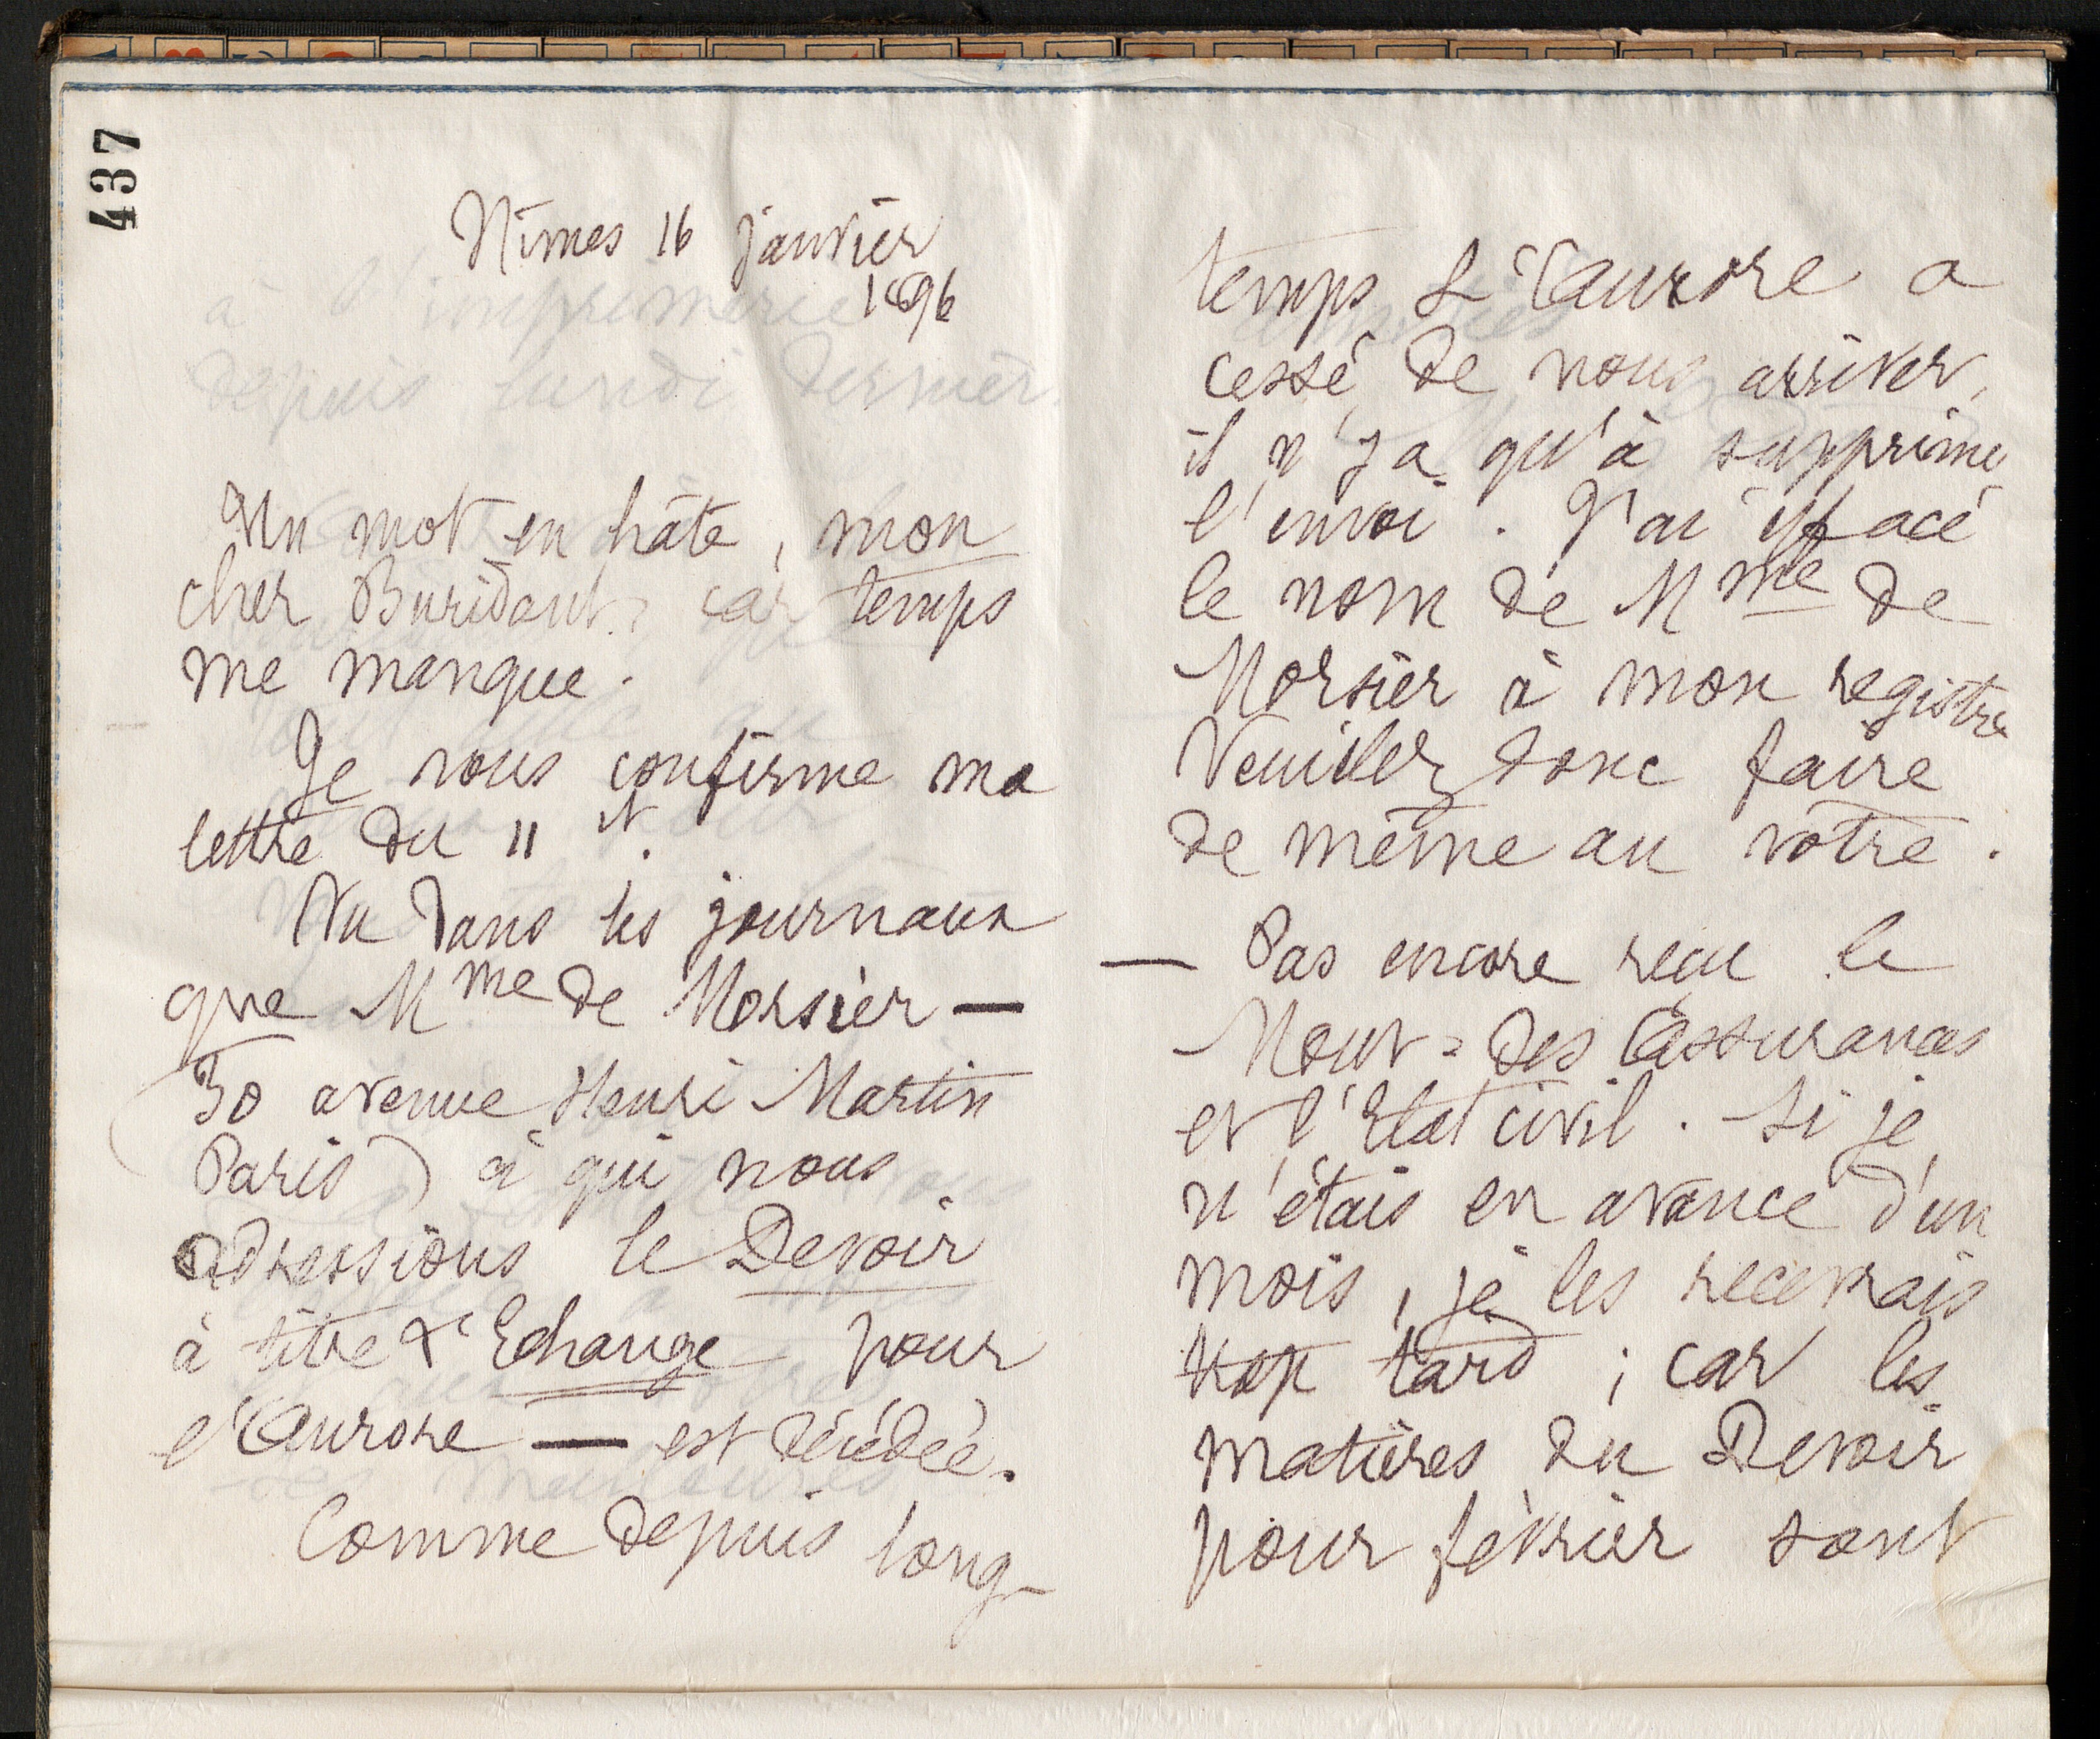 437
Nîmes 16 janvier
1896
Un mot en hâte, mon
cher Buridant, car temps
me manque.
Je vous confirme ma
lettre du 11 ct.
Vu dans les journaux
que Mme de Morsier —
(30 avenue Henri Martin
Paris) à qui nous
adressions le Devoir
à titre d'Echange pour
l'Aurore — est décédée.
Comme depuis long-
temps L'Aurore a
cessé de nous arriver,
il n'y a qu'à supprimer
l'envoi. J'ai effacé
le nom de Mme de
Morsier à mon registre
Veuillez donc faire
de même au vôtre.
— Pas encore reçu le
Mouvt = des Assurances
et l'Etat civil. Si je
n'étais en avance d'un
mois, je les recevrais
trop tard ; car les
matières du Devoir
pour février sont